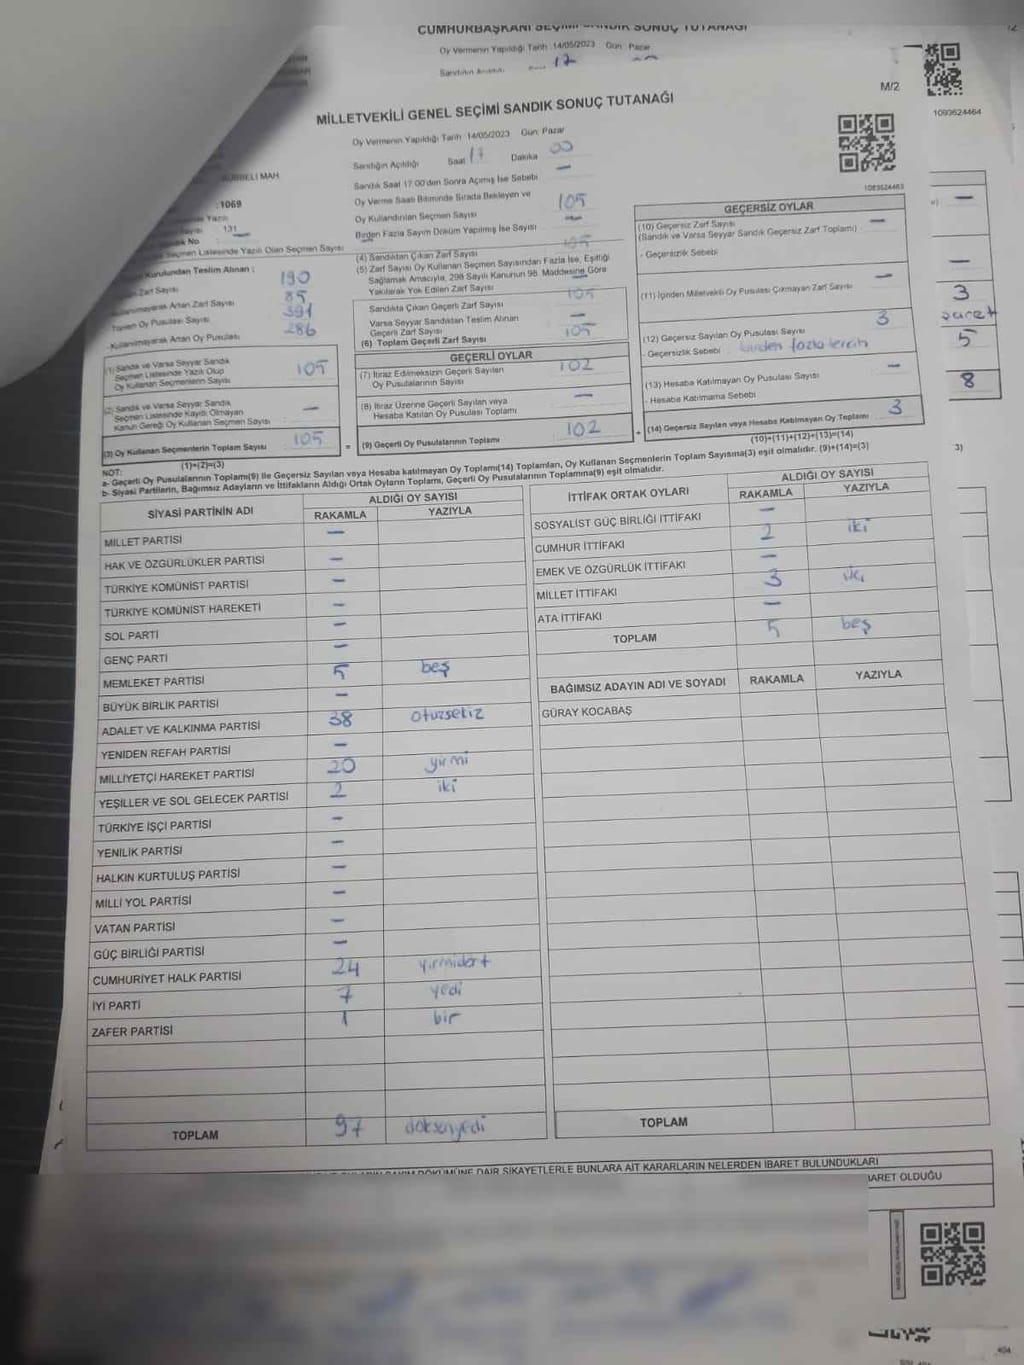 CUMHURBAŞKANI SEÇİMİ SANDIK SONUÇ TUTANAĞI
Oy Vermenin Yapıldığı Tarih :14/05/2023 Gün: Pazar
17
M/2
1093624464
MİLLETVEKİLİ GENEL SEÇİMİ SANDIK SONUÇ TUTANAĞI
Oy Vermenin Yapıldığı Tarih :14/05/2023 Gün: Pazar
Sandığın Açıldığı Saat 17 Dakika 00
Sandık Saat 17:00'den Sonra Açılmış İse Sebebi —
MAH.
:1069
131
Oy Verme Saati Bitiminde Sırada Bekleyen ve
Oy Kullandırılan Seçmen Sayısı 105
Birden Fazla Sayım Döküm Yapılmış İse Sayısı —
Seçmen Listesinde Yazılı Olan Seçmen Sayısı
Kurulundan Teslim Alınan :
Zarf Sayısı 190
Kullanılmayarak Artan Zarf Sayısı 85
Toplam Oy Pusulası Sayısı 391
-Kullanılmayarak Artan Oy Pusulası 286
(1) Sandık ve Varsa Seyyar Sandık
Seçmen Listesinde Yazılı Olup
Oy Kullanan Seçmenlerin Sayısı 105
(2) Sandık ve Varsa Seyyar Sandık
Seçmen Listesinde Kayıtlı Olmayan
Kanun Gereği Oy Kullanan Seçmen Sayısı —
(3) Oy Kullanan Seçmenlerin Toplam Sayısı 105
(1)+(2)=(3)
(4) Sandıktan Çıkan Zarf Sayısı 105
(5) Zarf Sayısı Oy Kullanan Seçmen Sayısından Fazla İse, Eşitliği
Sağlamak Amacıyla, 298 Sayılı Kanunun 98. Maddesine Göre
Yakılarak Yok Edilen Zarf Sayısı —
Sandıkta Çıkan Geçerli Zarf Sayısı 105
Varsa Seyyar Sandıktan Teslim Alınan
Geçerli Zarf Sayısı —
(6) Toplam Geçerli Zarf Sayısı 105
GEÇERLİ OYLAR
(7) İtiraz Edilmeksizin Geçerli Sayılan
Oy Pusulalarının Sayısı 102
(8) İtiraz Üzerine Geçerli Sayılan veya
Hesaba Katılan Oy Pusulası Toplamı —
= (9) Geçerli Oy Pusulalarının Toplamı 102 +
1093624463
GEÇERSİZ OYLAR
(10) Geçersiz Zarf Sayısı
(Sandık ve Varsa Seyyar Sandık Geçersiz Zarf Toplamı) —
- Geçersizlik Sebebi
(11) İçinden Milletvekili Oy Pusulası Çıkmayan Zarf Sayısı —
(12) Geçersiz Sayılan Oy Pusulası Sayısı 3
- Geçersizlik Sebebi birden fazla tercih
(13) Hesaba Katılmayan Oy Pusulası Sayısı —
- Hesaba Katılmama Sebebi
(14) Geçersiz Sayılan veya Hesaba Katılmayan Oy Toplamı 3
(10)+(11)+(12)+(13)=(14)
—
—
3
5
8
3)
NOT:
a- Geçerli Oy Pusulalarının Toplamı(9) ile Geçersiz Sayılan veya Hesaba katılmayan Oy Toplamı(14) Toplamları, Oy Kullanan Seçmenlerin Toplam Sayısına(3) eşit olmalıdır. (9)+(14)=(3)
b- Siyasi Partilerin, Bağımsız Adayların ve İttifakların Aldığı Ortak Oyların Toplamı, Geçerli Oy Pusulalarının Toplamına(9) eşit olmalıdır.
SİYASİ PARTİNİN ADI ALDIĞI OY SAYISI
RAKAMLA YAZIYLA
MİLLET PARTİSİ —
HAK VE ÖZGÜRLÜKLER PARTİSİ —
TÜRKİYE KOMÜNİST PARTİSİ —
TÜRKİYE KOMÜNİST HAREKETİ —
SOL PARTİ —
GENÇ PARTİ —
MEMLEKET PARTİSİ 5 beş
BÜYÜK BİRLİK PARTİSİ —
ADALET VE KALKINMA PARTİSİ 38 otuzsekiz
YENİDEN REFAH PARTİSİ —
MİLLİYETÇİ HAREKET PARTİSİ 20 yirmi
YEŞİLLER VE SOL GELECEK PARTİSİ 2 iki
TÜRKİYE İŞÇİ PARTİSİ —
YENİLİK PARTİSİ —
HALKIN KURTULUŞ PARTİSİ —
MİLLİ YOL PARTİSİ —
VATAN PARTİSİ —
GÜÇ BİRLİĞİ PARTİSİ —
CUMHURİYET HALK PARTİSİ 24 yirmidört
İYİ PARTİ 7 yedi
ZAFER PARTİSİ 1 bir
TOPLAM 97 doksanyedi
İTTİFAK ORTAK OYLARI ALDIĞI OY SAYISI
RAKAMLA YAZIYLA
SOSYALİST GÜÇ BİRLİĞİ İTTİFAKI —
CUMHUR İTTİFAKI 2 iki
EMEK VE ÖZGÜRLÜK İTTİFAKI —
MİLLET İTTİFAKI 3 üç
ATA İTTİFAKI —
TOPLAM 5 beş
BAĞIMSIZ ADAYIN ADI VE SOYADI RAKAMLA YAZIYLA
GÜRAY KOCABAŞ
TOPLAM
DÖKÜMÜNE DAİR ŞİKAYETLERLE BUNLARA AİT KARARLARIN NELERDEN İBARET BULUNDUKLARI
İBARET OLDUĞU